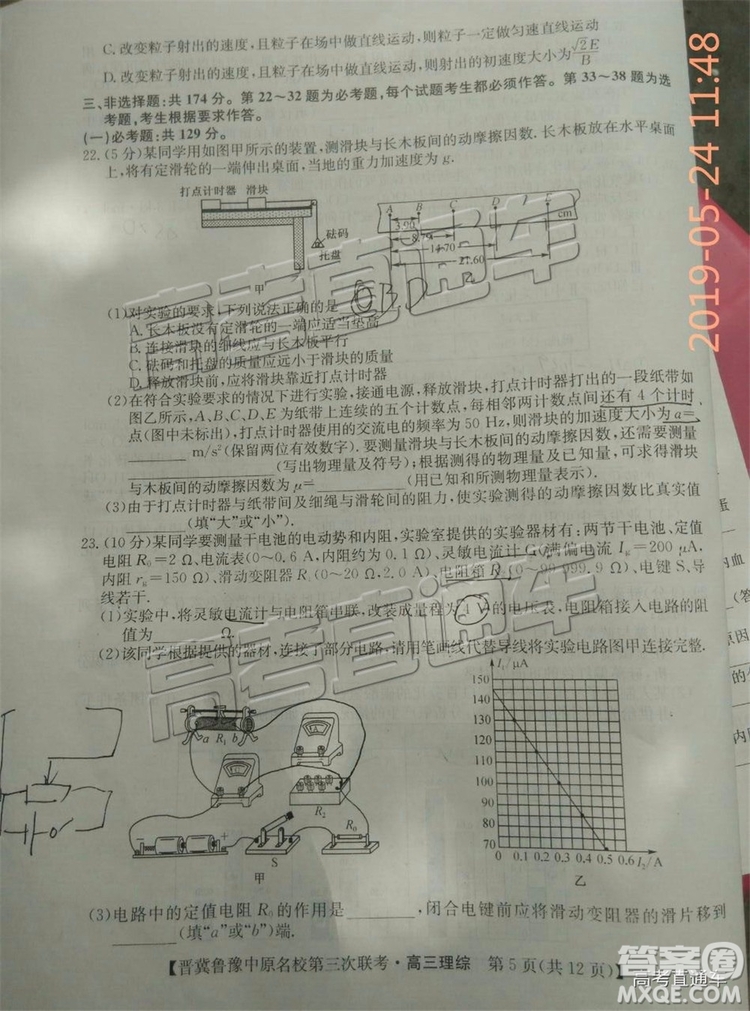 C. 改变粒子射出的速度,且粒子在场中做直线运动,则粒子一定做匀速直线运动
D. 改变粒子射出的速度,且粒子在场中做直线运动,则粒子的初速度大小为√2E/B
三、非选择题:共 174 分。第 22~32 题为必考题,每个试题考生都必须作答。第 33~38 题为选
考题,考生根据要求作答。
(一)必考题:共 129 分。
22. (5 分)某同学用如图甲所示的装置,测滑块与长木板间的动摩擦因数. 长木板放在水平桌面
上,将有定滑轮的一端伸出桌面,当地的重力加速度为 g.
打点计时器 滑块
砝码
托盘
甲
A B C D E
cm
3.90
8.79
14.70
21.60
(1)对实验的要求,下列说法正确的是
BD
A. 长木板没有定滑轮的一端应适当垫高
B. 连接滑块的细线应与长木板平行
C. 砝码和托盘的质量应远小于滑块的质量
D. 释放滑块前,应将滑块靠近打点计时器
(2)在符合实验要求的情况下进行实验,接通电源,释放滑块,打点计时器打出的一段纸带如
图乙所示,A、B、C、D、E 为纸带上连续的五个计数点,每相邻两计数点间还有 4 个计时
点(图中未标出),打点计时器所接的交流电的频率为 50 Hz,则滑块的加速度大小为 a=
______ m/s²(保留两位有效数字). 要测量滑块与长木板间的动摩擦因数,还需要测量
______(写出物理量及符号);根据测得的物理量及已知量,可求得滑块
与木板间的动摩擦因数为 μ=______(用已知和所测物理量表示).
(3)由于打点计时器与纸带间及细绳与滑轮间的阻力,使实验测得的动摩擦因数比真实值
______(填“大”或“小”).
23. (10 分)某同学要测量干电池的电动势和内阻,实验室提供的实验器材有:两节干电池、定值
电阻 R₀=2 Ω、电流表(0~0.6 A,内阻约为 0.1 Ω)、灵敏电流计 G(满偏电流 Ig=200 μA,
内阻 rg=150 Ω)、滑动变阻器(0~20 Ω,2.0 A)、电阻箱 R(0~99 999.9 Ω)、电键 S、导
线若干.
(1)实验中,将灵敏电流计与电阻箱串联,改装成量程为 4 V 的电压表,电阻箱接入电路的阻
值为______Ω.
(2)该同学根据提供的器材,连接了部分电路,请用笔画线代替导线将实验电路图甲连接完整.
a R₁ b
R₂
R₀
S
− +
甲
I₁/μA
150
140
130
120
110
100
90
80
70
0 0.1 0.2 0.3 0.4 0.5 0.6 I₂/A
乙
(3)电路中的定值电阻 R₀ 的作用是______,闭合电键前应将滑动变阻器的滑片移到
______(填“a”或“b”)端.
【晋冀鲁豫中原名校第三次联考·高三理综 第 5 页(共 12 页)】
2019-05-24 11:48
高考直通车
高考直通车
答案卷
MXQE.COM
高考直通车